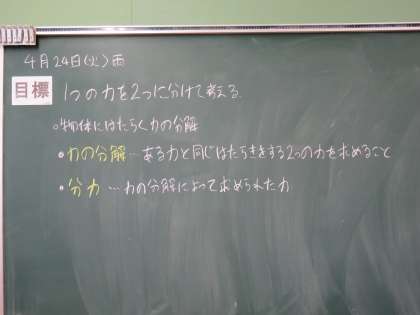 4月24日(火)雨
目標 1つの力を2つに分けて考える.
○物体にはたらく力の分解
•力の分解…ある力と同じはたらきをする2つの力を求めること
•分力…力の分解によって求められた力